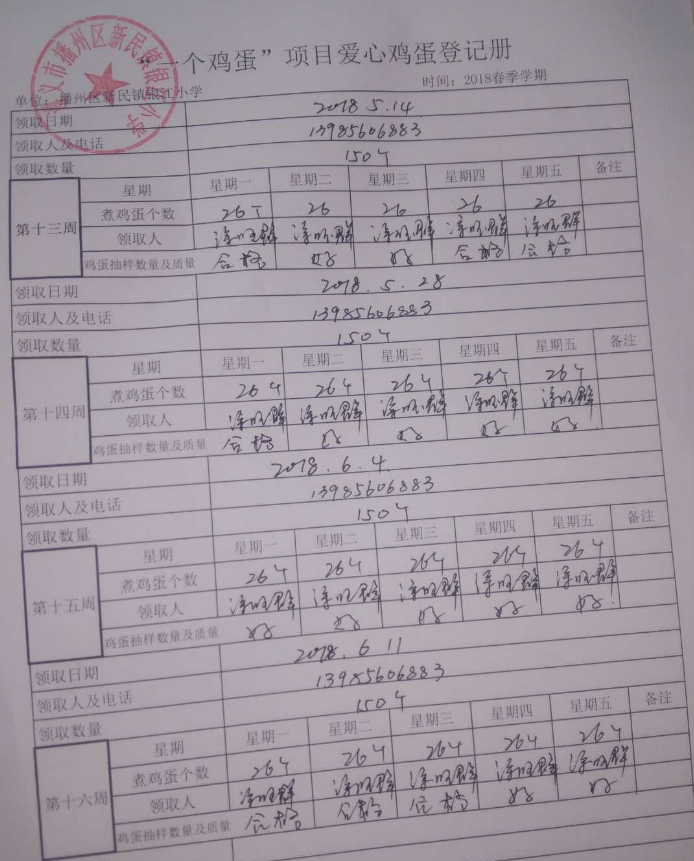 “一个鸡蛋”项目爱心鸡蛋登记册
单位：播州区新民镇银江小学 时间：2018春季学期
领取日期 2018.5.14
领取人及电话 13985606883
领取数量 150个
第十三周 星期 星期一 星期二 星期三 星期四 星期五 备注
煮鸡蛋个数 26个 26 26 26 26
领取人
鸡蛋抽样数量及质量 合格 好 好 合格 合格
领取日期 2018.5.28
领取人及电话 13985606883
领取数量 150个
第十四周 星期 星期一 星期二 星期三 星期四 星期五 备注
煮鸡蛋个数 26个 26个 26个 26个 26个
领取人
鸡蛋抽样数量及质量 合格 好 好 好 好
领取日期 2018.6.4
领取人及电话 13985606883
领取数量 150个
第十五周 星期 星期一 星期二 星期三 星期四 星期五 备注
煮鸡蛋个数 26个 26个 26个 26个 26个
领取人
鸡蛋抽样数量及质量 好 好 好 好 好
领取日期 2018.6 11
领取人及电话 13985606883
领取数量 150个
第十六周 星期 星期一 星期二 星期三 星期四 星期五 备注
煮鸡蛋个数 26个 26个 26个 26个 26个
领取人
鸡蛋抽样数量及质量 合格 合格 合格 好 好